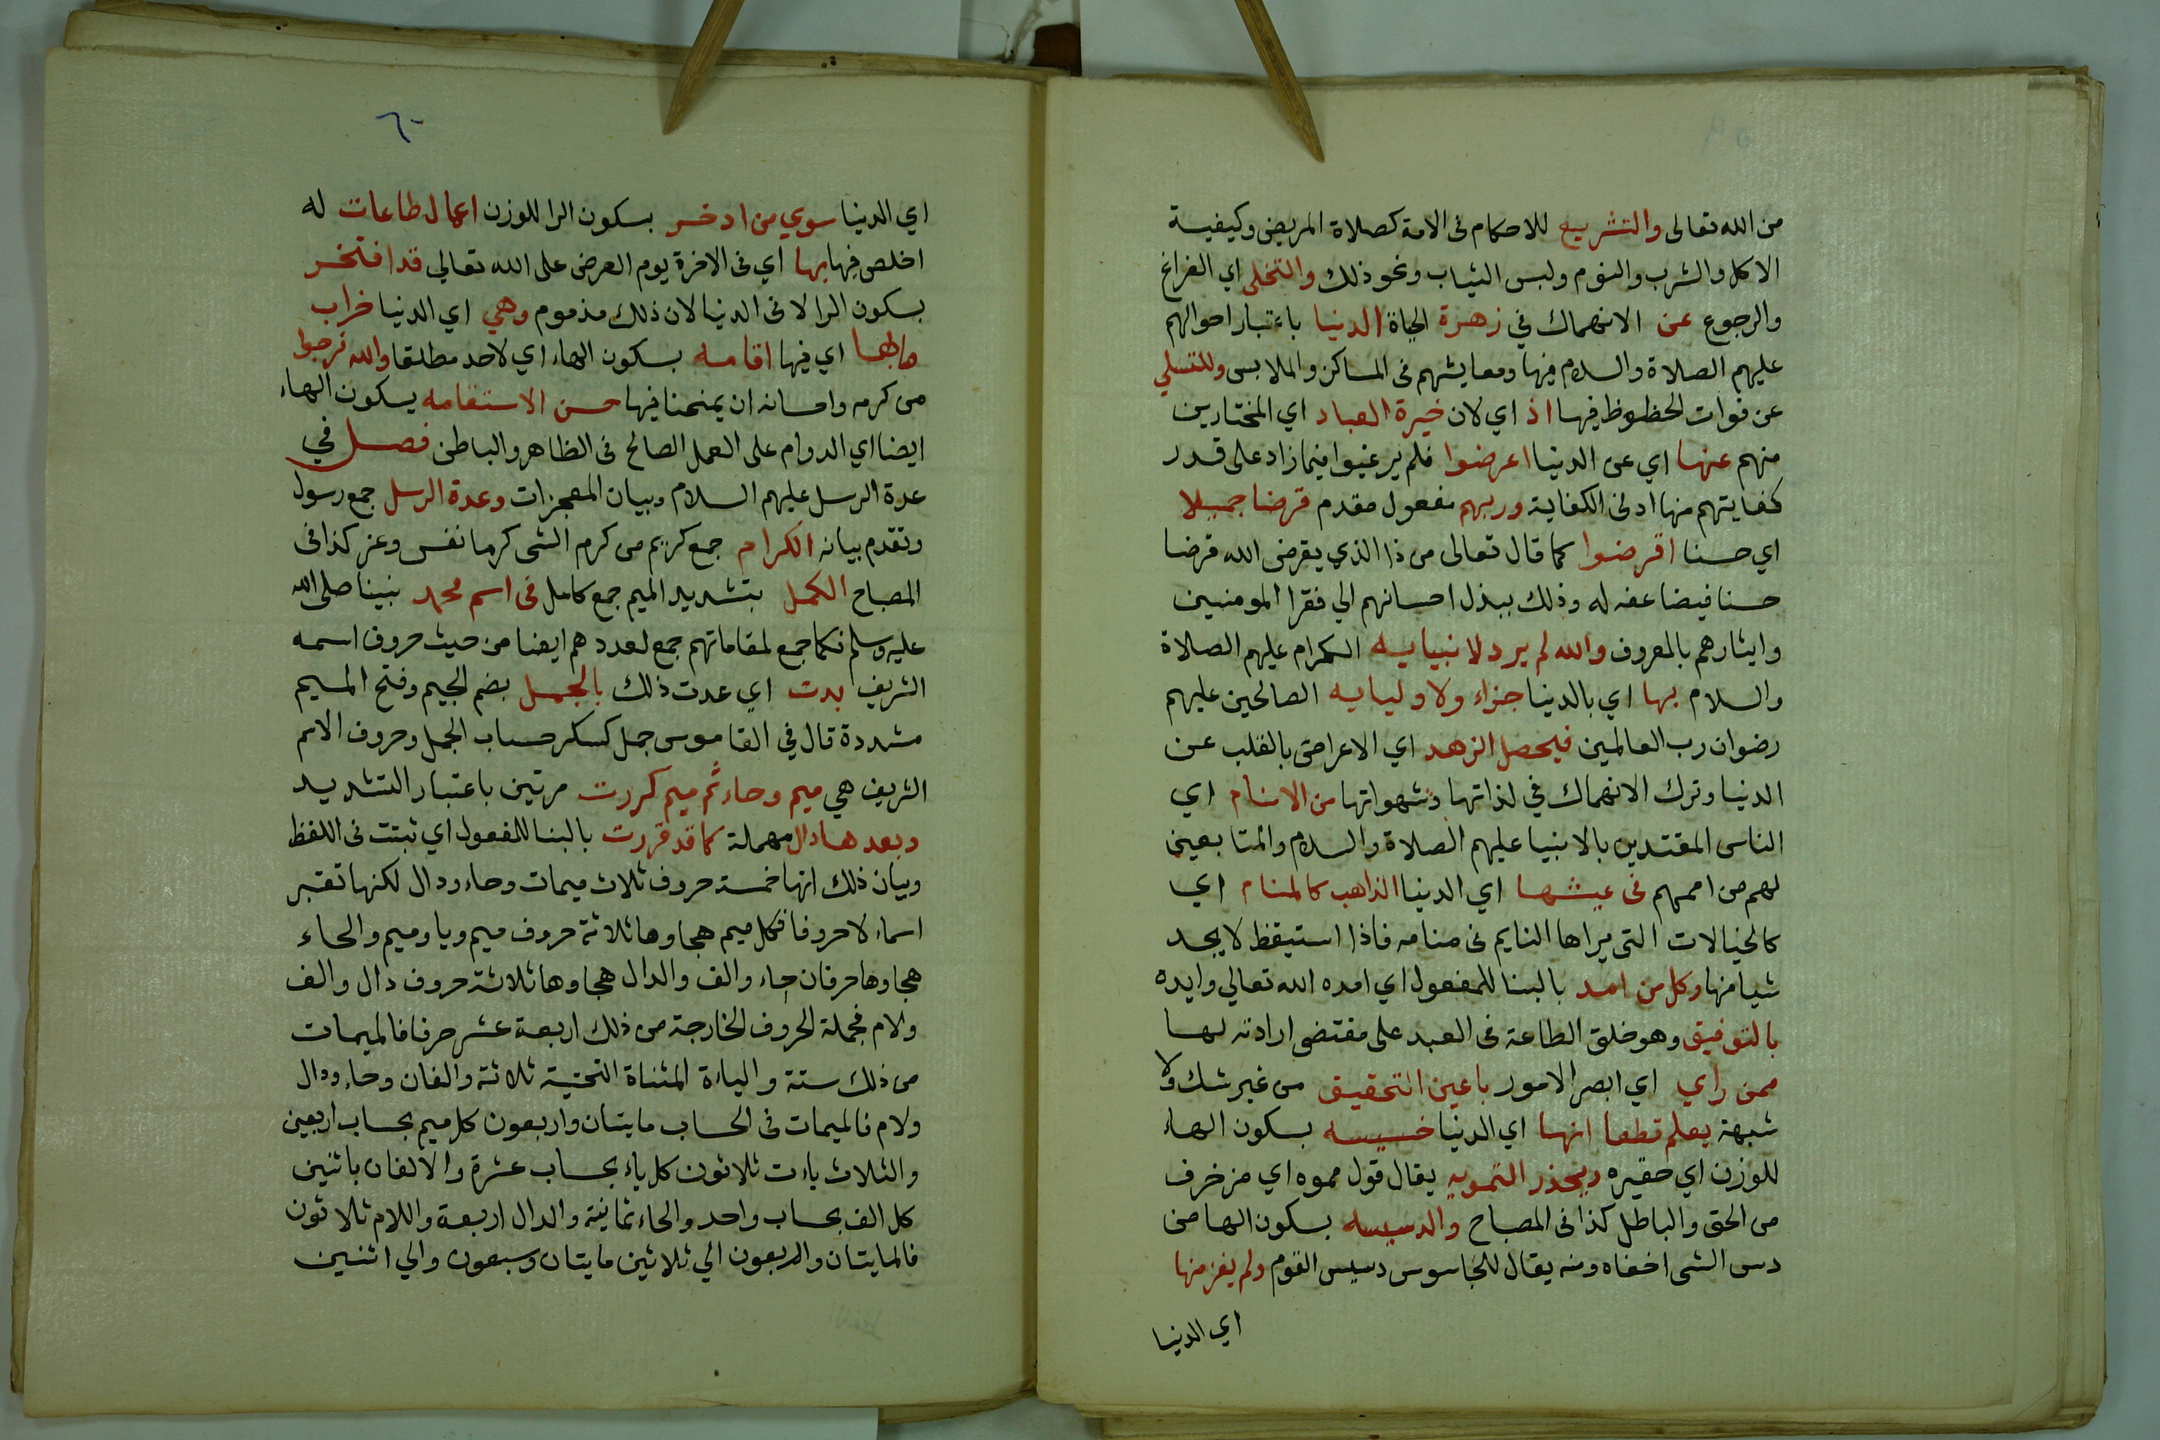 من الله تعالى والتشريع للاحكام فى الامة كصلاة المريض وكيفية
الاكل والشرب والنوم ولبس الثياب ونحو ذلك والتخلى اي الفراغ
والرجوع عن الانهماك في زهرة الحياة الدنيا باعتبار احوالهم
عليهم الصلاة والسلام فيها ومعايشهم فى المساكن والملابس وللتسلي
عن فوات الحظوظ فيها اذ اي لان خيرة العباد اي المختارين
منهم عنها اي عن الدنيا اعرضوا فلم يرغبوا فيما زاد على قدر
كفايتهم منها ادنى الكفاية وربهم مفعول مقدم قرضا جميلا
اي حسنا اقرضوا كما قال تعالى من ذا الذي يقرض الله قرضا
حسنا فيضاعفه له وذلك ببذل احسانهم الي فقرا المومنين
وايثارهم بالمعروف والله لم يرد لانبيايه الكرام عليهم الصلاة
والسلام بها اي بالدنيا جزاء ولا وليايه الصالحين عليهم
رضوان رب العالمين فيحصل الزهد اي الاعراض بالقلب عن
الدنيا وترك الانهماك في لذاتها وشهواتها من الانام اي
الناس المقتدين بالانبيا عليهم الصلاة والسلام والمتابعين
لهم من اممهم فى عيشها اي الدنيا الذاهب كالمنام اي
كالخيالات التى يراها النايم فى منامه فاذا استيقظ لا يجد
شيا منها وكل من امد بالبنا للمفعول اي امده الله تعالي وايده
بالتوفيق وهو خلق الطاعة فى العبد على مقتضى ارادته لها
ممن راي اي ابصر الامور باعين التحقيق من غير شك ولا
شبهة يعلم قطعا انها اي الدنيا خسيسه بسكون الهاء
للوزن اي حقيره ويحذر التمويه يقال قول مموه اي مزخرف
من الحق والباطل كذا فى المصباح والدسيسه بسكون الها من
دس الشى اخفاه ومنه يقال للجاسوس دسيس القوم ولم يفز منها
اي الدنيا
٦٠
اي الدنيا سوي من ادخر بسكون الرا للوزن اعمال طاعات له
اخلص فيها بها اي فى الاخرة يوم العرض على الله تعالي قد افتخر
بسكون الرا لا فى الدنيا لان ذلك مذموم وهي اي الدنيا خراب
مابها اي فيها اقامه بسكون الهاء اي لاحد مطلقا والله نرجوا
من كرمه واحسانه ان يمنحنا فيها حسن الاستقامه بسكون الهاء
ايضا اي الدوام على العمل الصالح فى الظاهر والباطن فصل في
عدة الرسل عليهم السلام وبيان المعجزات وعدة الرسل جمع رسول
وتقدم بيانه الكرام جمع كريم من كرم الشى كرما نفس وعز كذا فى
المصباح الكمل بتشديد الميم جمع كامل فى اسم محمد نبينا صلى الله
عليه وسلم فكما جمع لمقاماتهم جمع لعددهم ايضا من حيث حروف اسمه
الشريف بدت اي عدت ذلك بالجمل بضم الجيم وفتح الميم
مشددة قال في القاموس جمل كسكر حساب الجمل وحروف الاسم
الشريف هي ميم وحاء ثم ميم كررت مرتين باعتبار التشديد
وبعدها دال مهملة كما قد قررت بالبنا للمفعول اي ثبتت فى اللفظ
وبيان ذلك انها خمسة حروف ثلاث ميمات وحاء ودال لكنها تعتبر
اسماء لا حروفا فكل ميم هجاوها ثلاثة حروف ميم ويا وميم والحاء
هجاوها حرفان حاء والف والدال هجاوها ثلاثة حروف دال والف
ولام فجملة الحروف الخارجة من ذلك اربعة عشر حرفا فالميمات
من ذلك ستة والياءة المثناة التحتية ثلاثة والفان وحاء ودال
ولام فالميمات فى الحساب مايتان واربعون كل ميم بحساب اربعين
والثلاث ياءت ثلاثون كل ياء بحساب عشرة والالفان باثنين
كل الف بحساب واحد والحاء ثمانية والدال اربعة واللام ثلاثون
فالمايتان والاربعون الي ثلاثين مايتان وسبعون والي اثنين